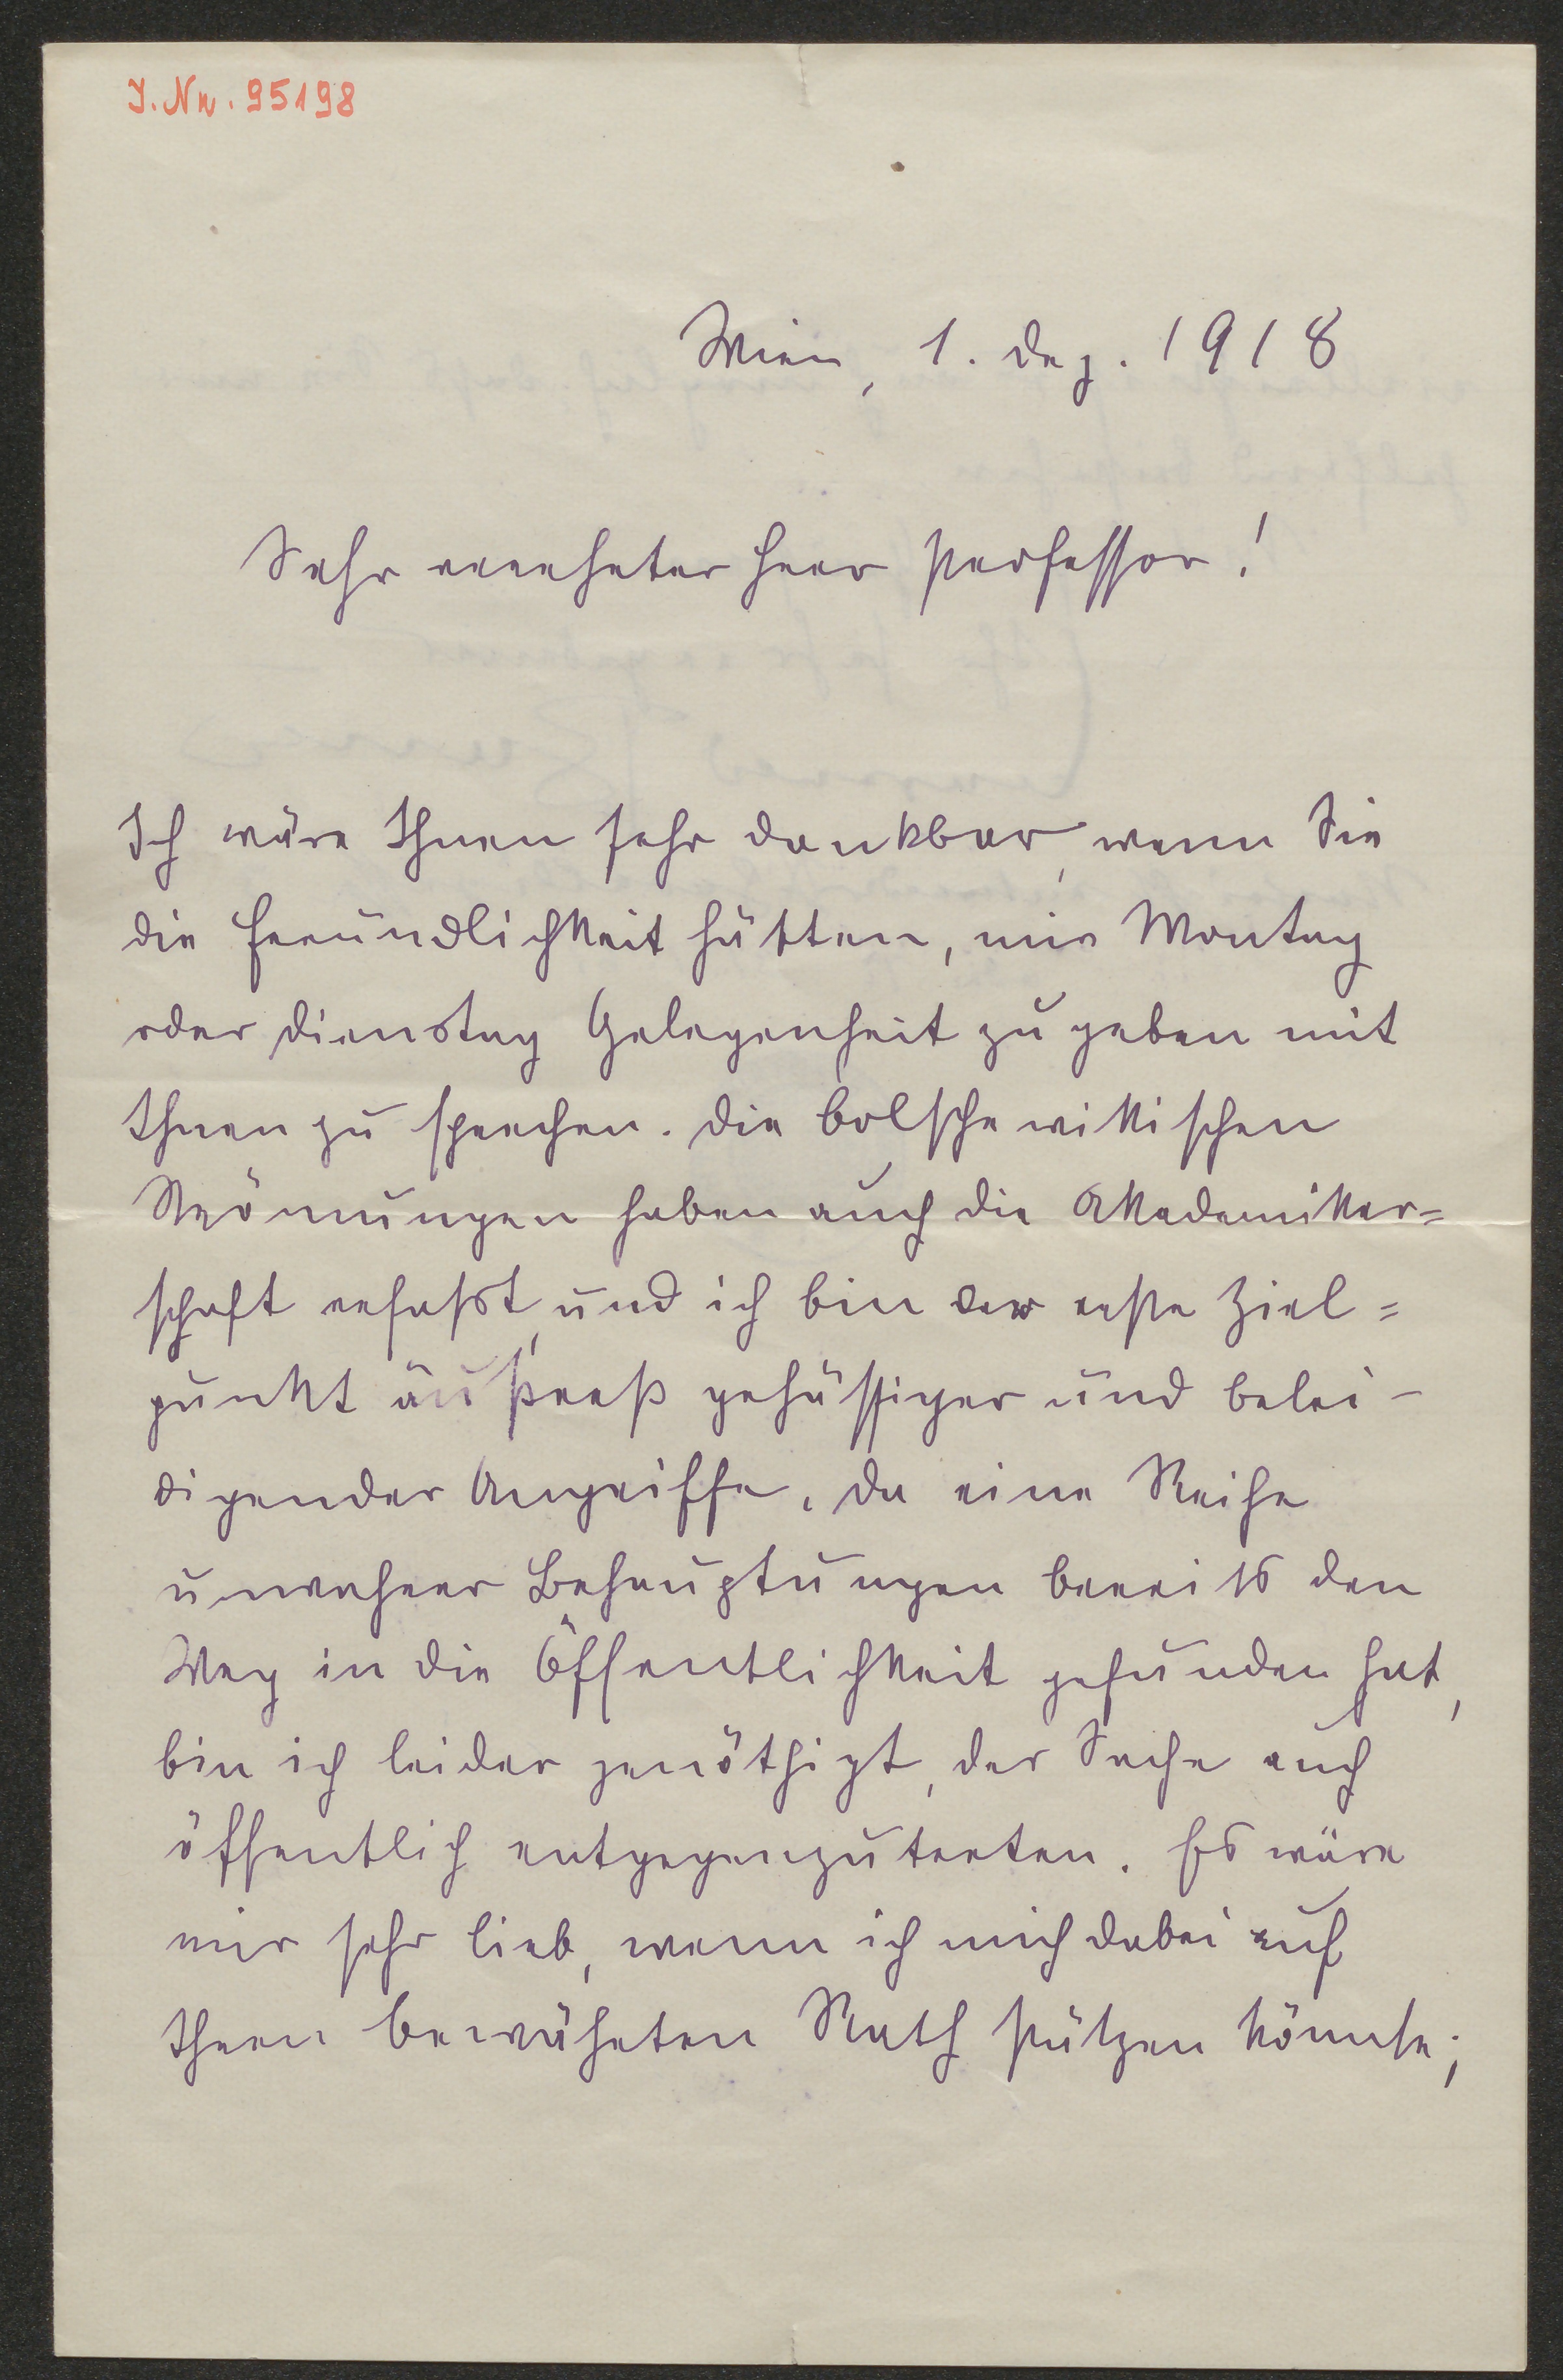 I. Nr. 95198
Wien, 1. Dez. 1918
Sehr verehrter Herr Professor!
Ich wäre Ihnen sehr dankbar, wenn Sie
die Freundlichkeit hätten, mir Montag
oder Dienstag Gelegenheit zu geben mit
Ihnen zu sprechen. Die bolschewikischen
Strömungen haben auch die Akademiker=
schaft erfaßt, und ich bin der erste Ziel=
punkt äußerst gehässiger und belei-
digender Angriffe. Da eine Reihe
unwahrer Behauptungen bereits den
Weg in die Öffentlichkeit gefunden hat,
bin ich leider genöthigt, der Sache auch
öffentlich entgegenzutreten. Es wäre
mir sehr lieb, wenn ich mich dabei auf
Ihren bewährten Rath stützen könnte;